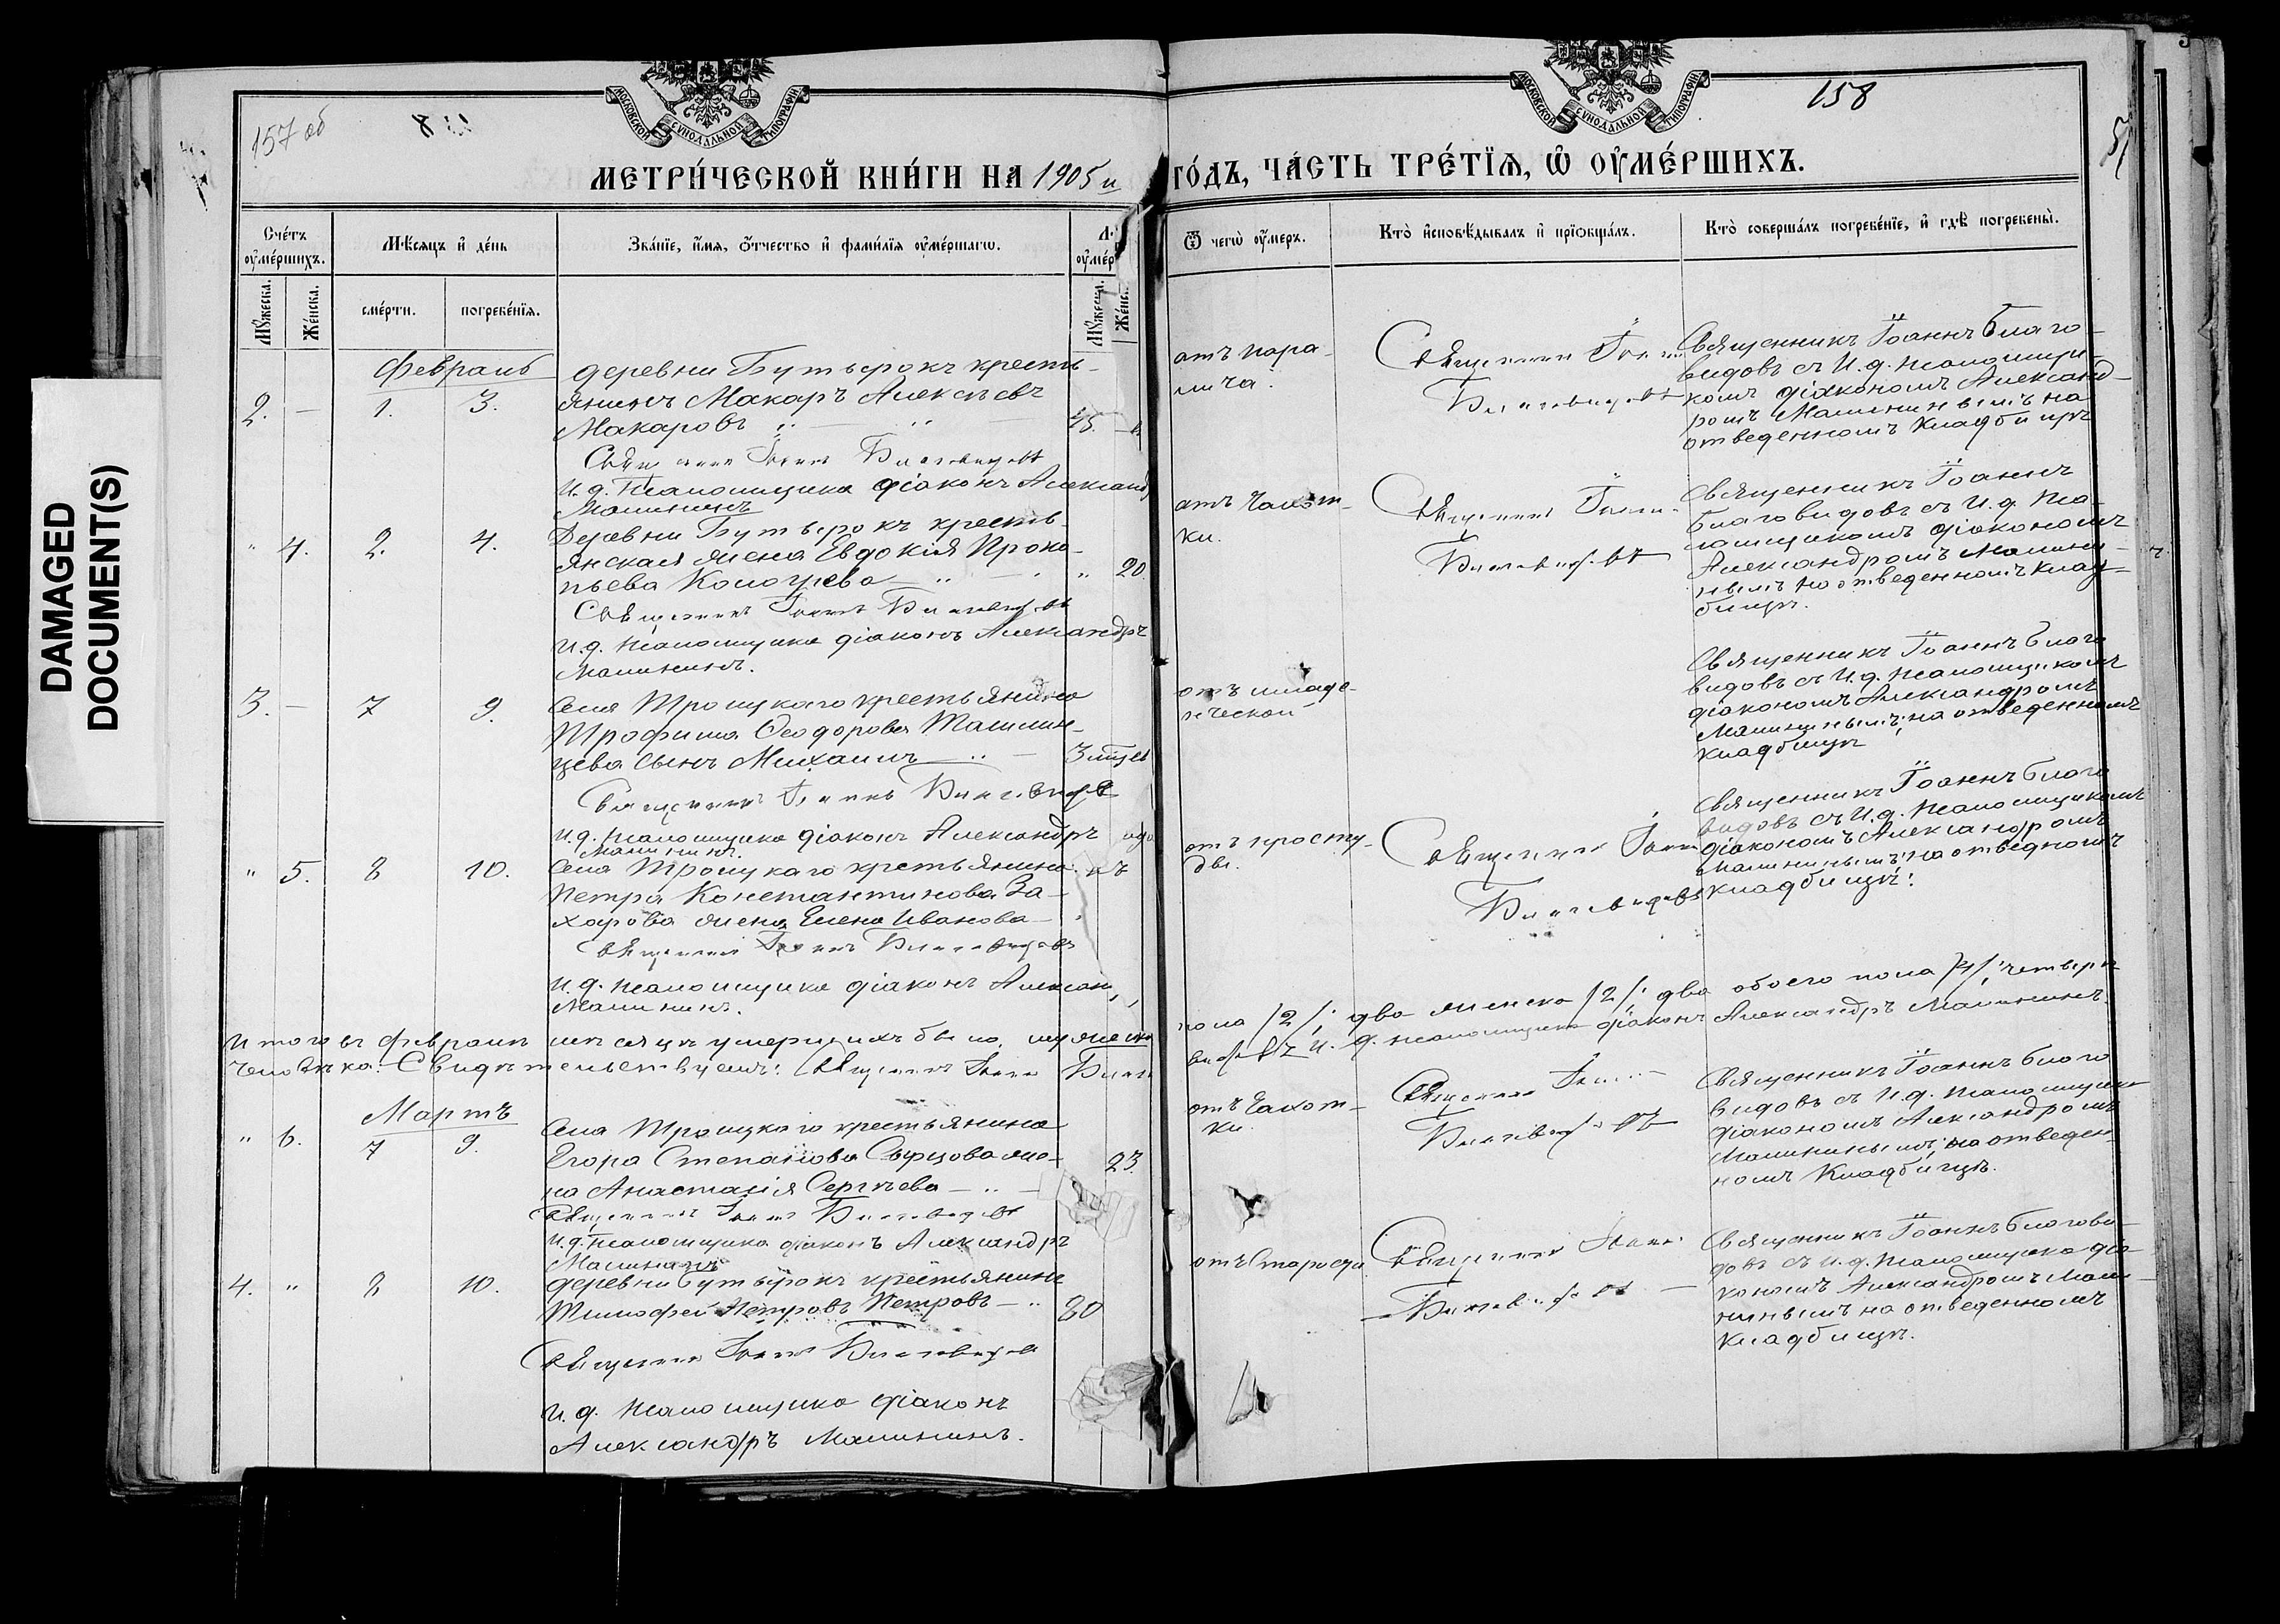 DAMAGED
DOCUMENT(S)
157 об
158
МОСКОВСКОЙ СѴНОДАЛЬНОЙ ТИПОГРАФІИ
МОСКОВСКОЙ СѴНОДАЛЬНОЙ ТИПОГРАФІИ
МЕТРИ́ЧЕСКОЙ КНИ́ГИ НА 1905 й ГО́ДЪ, ЧА́СТЬ ТРЕ́ТЇѦ, Ѡ ОУМЕ́РШИХЪ.
Сче́тъ оуме́ршихъ.
Мꙋ́жеска.
Же́нска.
Мѣ́сяцъ и де́нь
сме́рти.
погребе́нїѧ.
Зва́нїе, и́мѧ, о́тчество и фами́лїѧ оуме́ршагѡ.
оумер
Мꙋ́жеска.
Же́нс.
Ѿ чегѡ̀ оу́меръ.
Кто̀ исповѣ́дывалъ и прїѡбща́лъ.
Кто̀ соверша́лъ погребе́нїе, и гдѣ̀ погребены̀.
Февраль
2. — 1. 3.
деревни Бутырокъ кресть-
янинъ Макаръ Алексѣевъ
Макаровъ 45.
Священникъ Іоаннъ Благовидовъ
И. д. Псаломщика діаконъ Александръ
Малининъ
отъ пара-
лича.
Священникъ Іоаннъ
Благовидовъ
Священникъ Іоаннъ Благо-
видовъ съ И. д. псаломщи-
комъ діакономъ Александ-
ромъ Малининымъ на
отведенномъ кладбищѣ
" 4. 2. 4.
Деревни Бутырокъ кресть-
янская жена Евдокія Проко-
пьева " 20
Священникъ Іоаннъ Благовидовъ
И. д. псаломщика діаконъ Александръ
Малининъ.
отъ чахот-
ки.
Священникъ Іоаннъ
Благовидовъ
Священникъ Іоаннъ
Благовидовъ съ И. д. Пса-
ломщикомъ діакономъ
Александромъ Малини-
нымъ на отведенномъ клад-
бищѣ.
3. — 7 9.
Села Троицкаго крестьянина
Трофима Ѳеодорова
сынъ Михаилъ 3 мѣс
Священникъ Іоаннъ Благовидовъ
И. д. псаломщика діаконъ Александръ
Малининъ.
отъ младе-
нческой
Священникъ Іоаннъ Благо
видовъ съ И. д. псаломщикомъ
діакономъ Александромъ
Малининымъ, на отведенномъ
кладбищѣ
" 5. 8 10.
Села Троицкаго крестьянина
Петра Константинова За-
харова жена Елена Иванова
Священникъ Іоаннъ Благовидовъ
И. д. псаломщика діаконъ Александръ
Малининъ.
отъ просту-
ды.
Священникъ Іоаннъ
Благовидовъ
Священникъ Іоаннъ Благо
видовъ съ И. д. псаломщикомъ
діакономъ Александромъ
Малининымъ, на отведномъ
кладбищѣ.
Итого въ Февралѣ мѣсяцѣ умершихъ было. мужеска пола /2/; два женска /2/; два обоего пола /4/; четыре
человѣка. Свидѣтельствуемъ: Священникъ Іоаннъ Благовидовъ И. д. псаломщика діаконъ Александръ Малининъ.
Мартъ
" 6. 7 9.
Села Троицкаго крестьянина
Егора Степанова же-
на Анастасія Сергѣева 23.
Священникъ Іоаннъ Благовидовъ
И. д. Псаломщика діаконъ Александръ
Малининъ
отъ чахот-
ки.
Священникъ Іоаннъ
Благовидовъ
Священникъ Іоаннъ Благо
видовъ съ И. д. псаломщико
діакономъ Александромъ
Малининымъ, на отведен-
номъ кладбищѣ.
4. " 8 10.
деревни Бутырокъ крестьянинъ
Тимофей Петровъ Петровъ 80
Священникъ Іоаннъ Благовидовъ
И. д. псаломщика діаконъ
Александръ Малининъ.
отъ старости
Священникъ Іоаннъ
Благовидовъ
Священникъ Іоаннъ Благови-
довъ съ И. д. псаломщика діа-
кономъ Александромъ Мали-
нинымъ на отведенномъ
кладбищѣ.